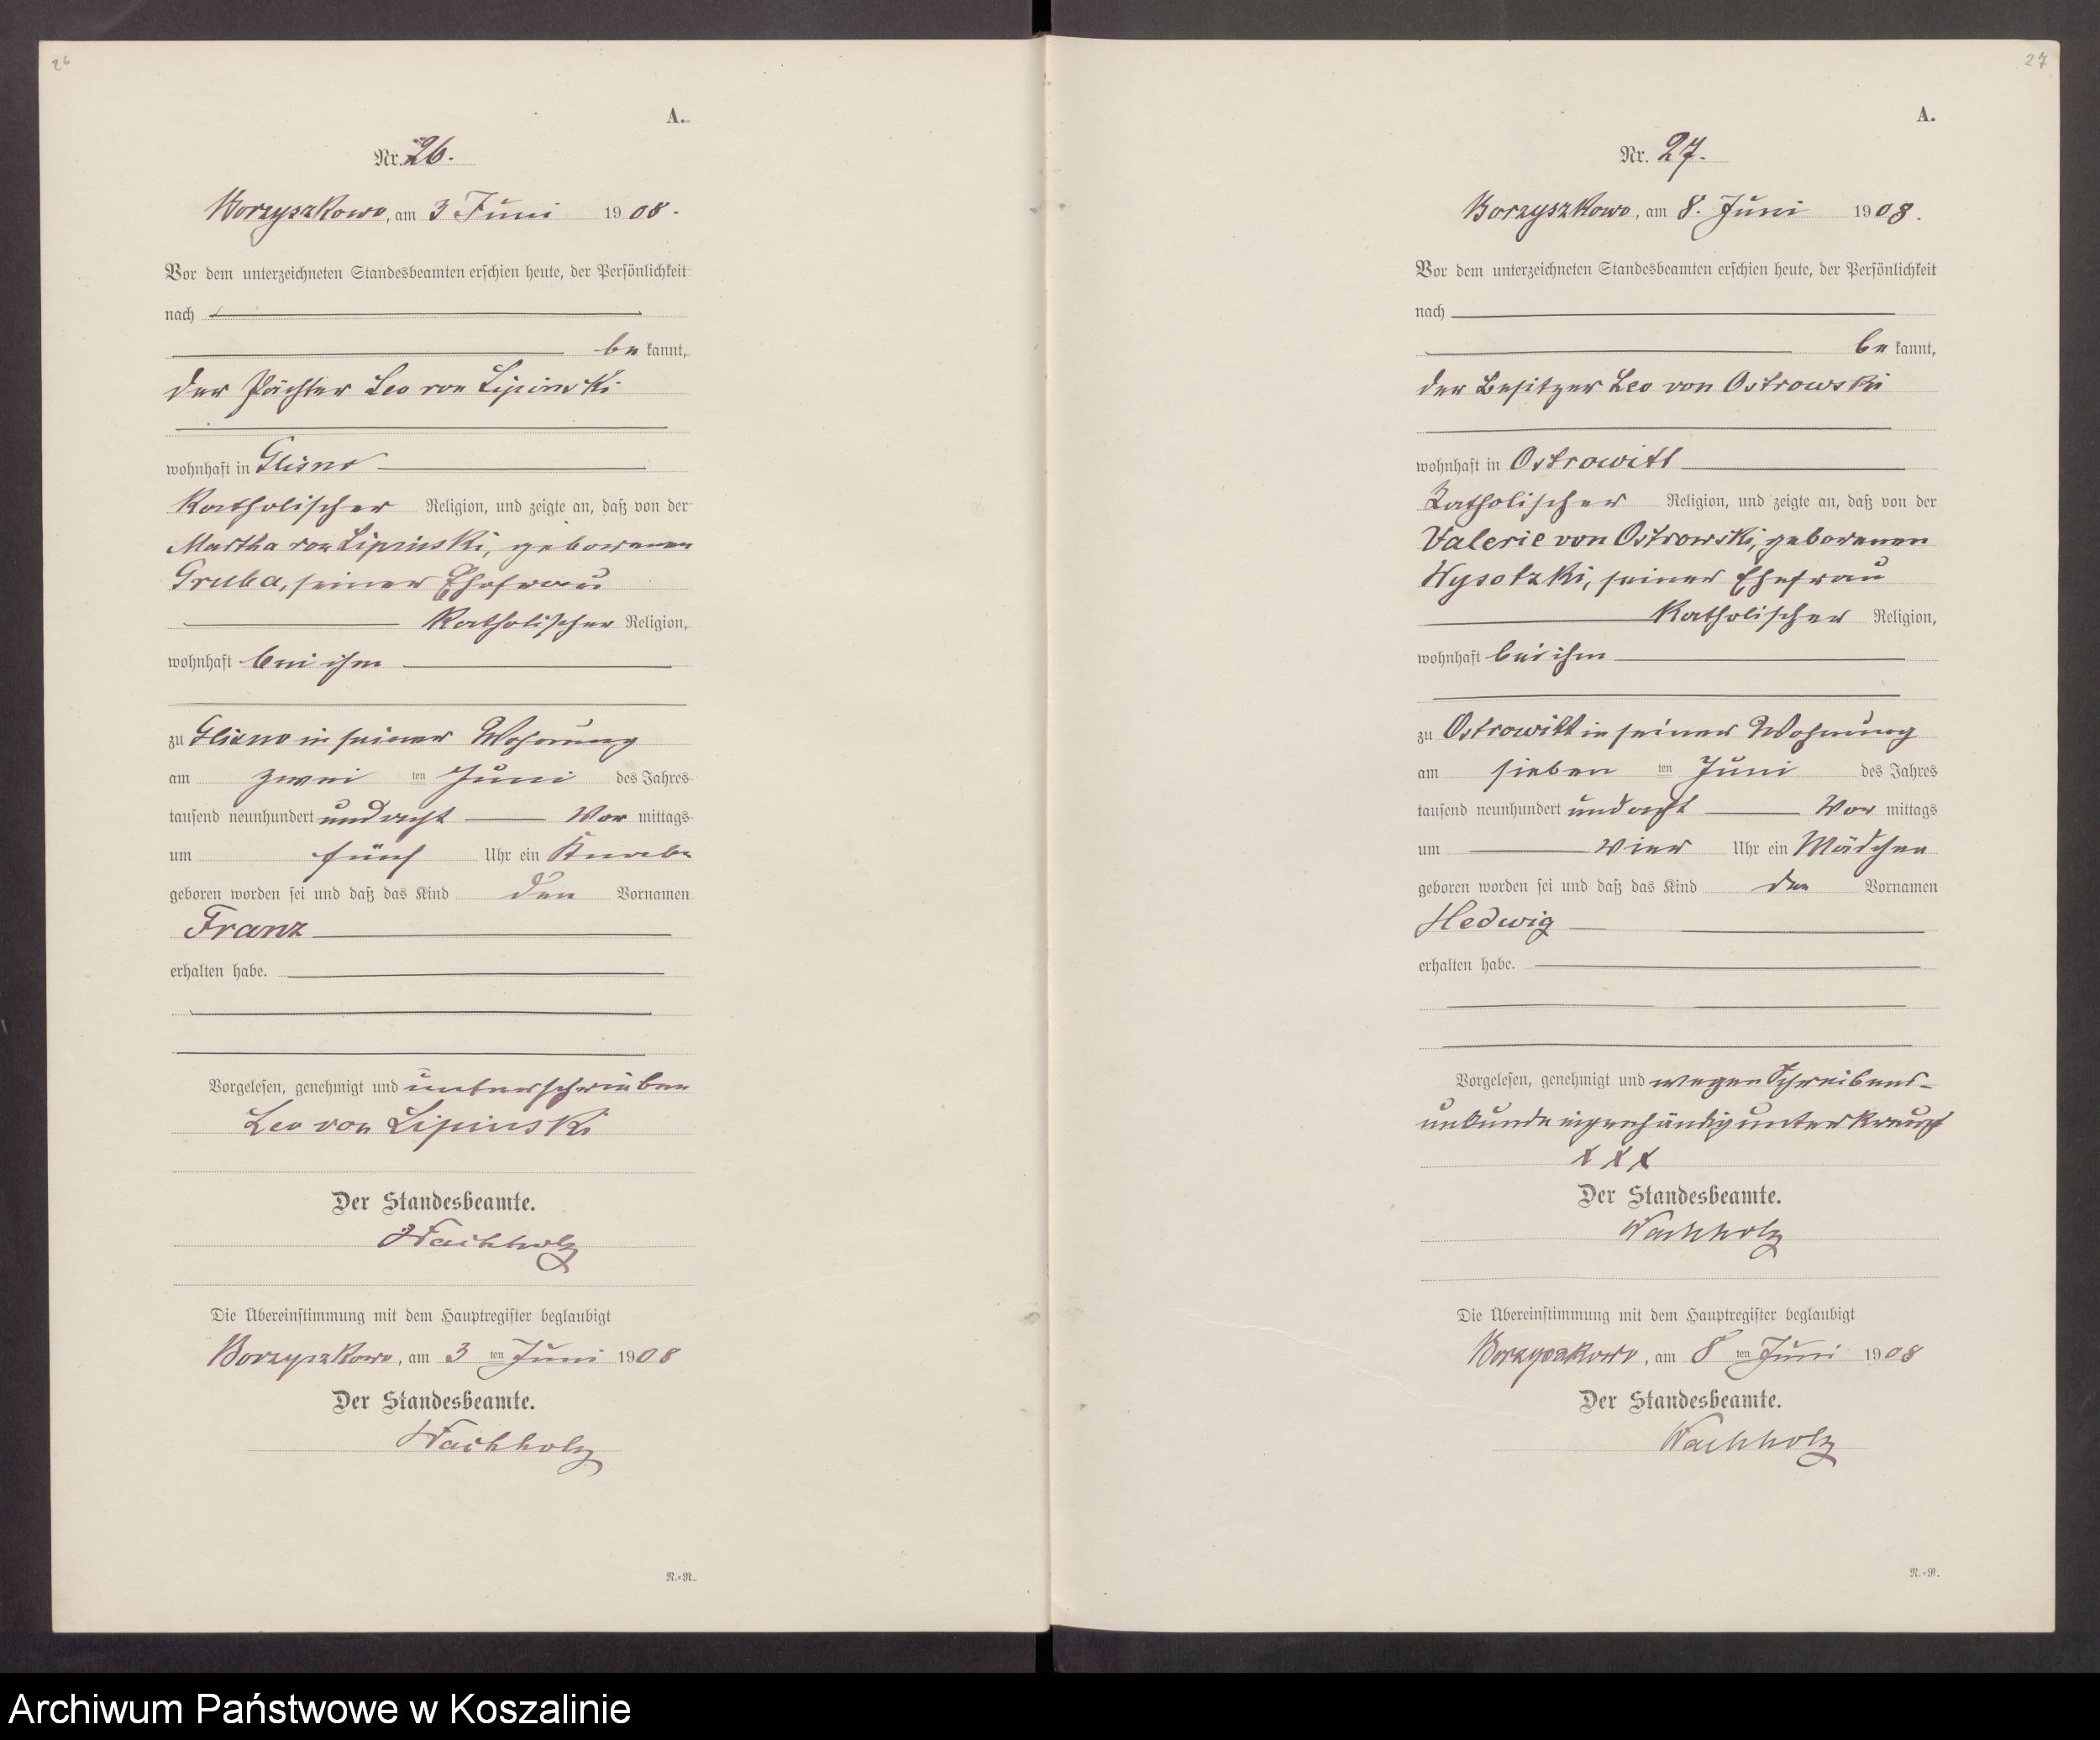 26
A.
Nr. 26.
Borzyszkowo, am 3 Juni 1908.
Vor dem unterzeichneten Standesbeamten erschien heute, der Persönlichkeit
nach
be kannt,
der Pächter Leo von Lipinski
wohnhaft in Glisno
katholischer Religion, und zeigte an, daß von der
Martha von Lipinski, geborenen
Gruba, seiner Ehefrau
katholischer Religion,
wohnhaft bei ihm
zu Glisno in seiner Wohnung
am zwei ten Juni des Jahres
tausend neunhundert und acht Vor mittags
um fünf Uhr ein Knabe
geboren worden sei und daß das Kind den Vornamen
Franz
erhalten habe.
Vorgelesen, genehmigt und unterschrieben
Leo von Lipinski
Der Standesbeamte.
Wachholz
Die Übereinstimmung mit dem Hauptregister beglaubigt
Borzyszkowo, am 3 ten Juni 1908
Der Standesbeamte.
Wachholz
N.=R.
27
A.
Nr. 27.
Borzyszkowo, am 8. Juni 1908.
Vor dem unterzeichneten Standesbeamten erschien heute, der Persönlichkeit
nach
be kannt,
der Besitzer Leo von Ostrowski
wohnhaft in Ostrowitt
katholischer Religion, und zeigte an, daß von der
Valerie von Ostrowski, geborenen
Wysotzki, seiner Ehefrau
katholischer Religion,
wohnhaft bei ihm
zu Ostrowitt in seiner Wohnung
am sieben ten Juni des Jahres
tausend neunhundert und acht Vor mittags
um vier Uhr ein Mädchen
geboren worden sei und daß das Kind den Vornamen
Hedwig
erhalten habe.
Vorgelesen, genehmigt und wegen Schreibens-
unkunde eigenhändig unterkreuzt
X X X
Der Standesbeamte.
Wachholz
Die Übereinstimmung mit dem Hauptregister beglaubigt
Borzyszkowo, am 8 ten Juni 1908
Der Standesbeamte.
Wachholz
N.=R.
Archiwum Państwowe w Koszalinie